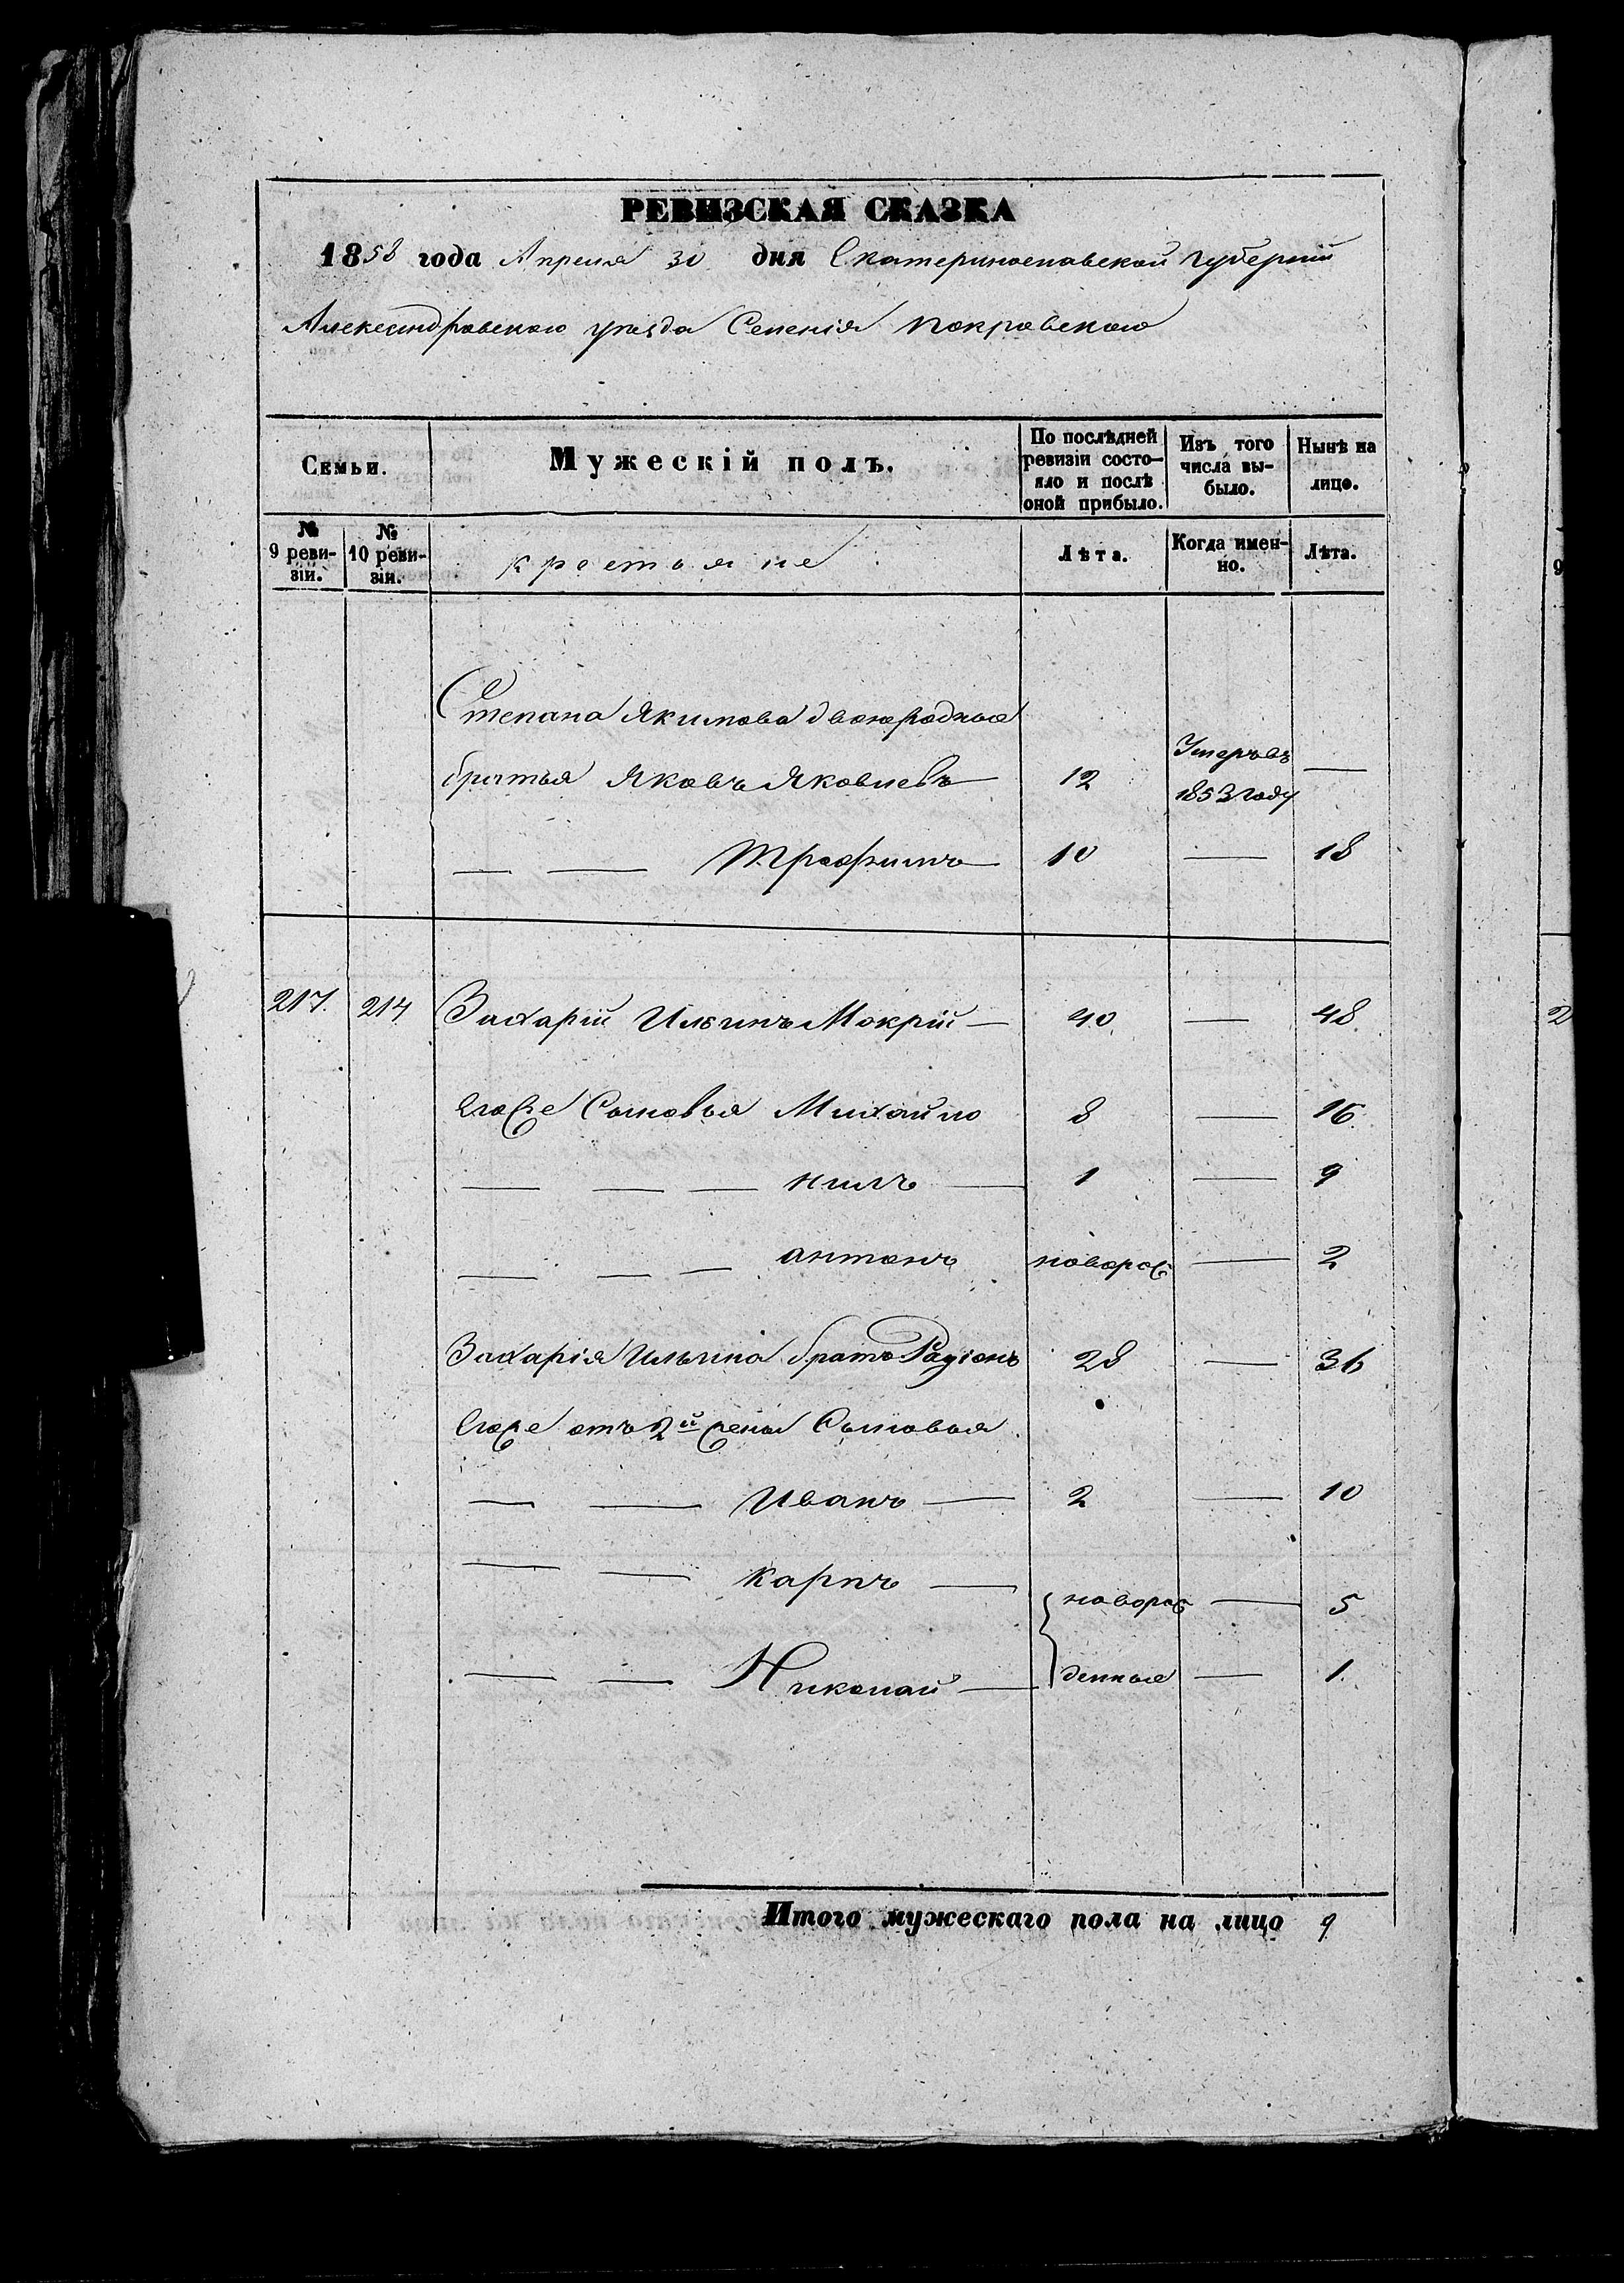 РЕВИЗСКАЯ СКАЗКА
1858 года Апреля 30 дня Екатеринославской губерніи
Александровскаго уѣзда Селенія Покровскаго
Семьи.
Мужескій полъ.
По послѣдней ревизіи состояло и послѣ оной прибыло.
Изъ того числа выбыло.
Нынѣ на лицо.
№ 9 ревизіи.
№ 10 ревизіи.
крестьяне
Лѣта.
Когда именно.
Лѣта.
Степана Якимова двоюродные
братья Яковъ Яковлевъ — 12 Умеръ въ 1853 году —
— — Трофимъ — 10 — 18
217. 214 Захарій Ильинъ Мокрій — 40 — 48
Егоже Сыновья Михайло 8 — 16
— — — Нилъ — 1 — 9
— — — антонъ новорож — 2
Захарія Ильина братъ Радіонъ 28 — 36
Егоже отъ 2й жены Сыновья
— — Иванъ — 2 — 10
— — Карпъ — новорож — 5
— — Николай — денные — 1
Итого мужескаго пола на лицо 9
9
2